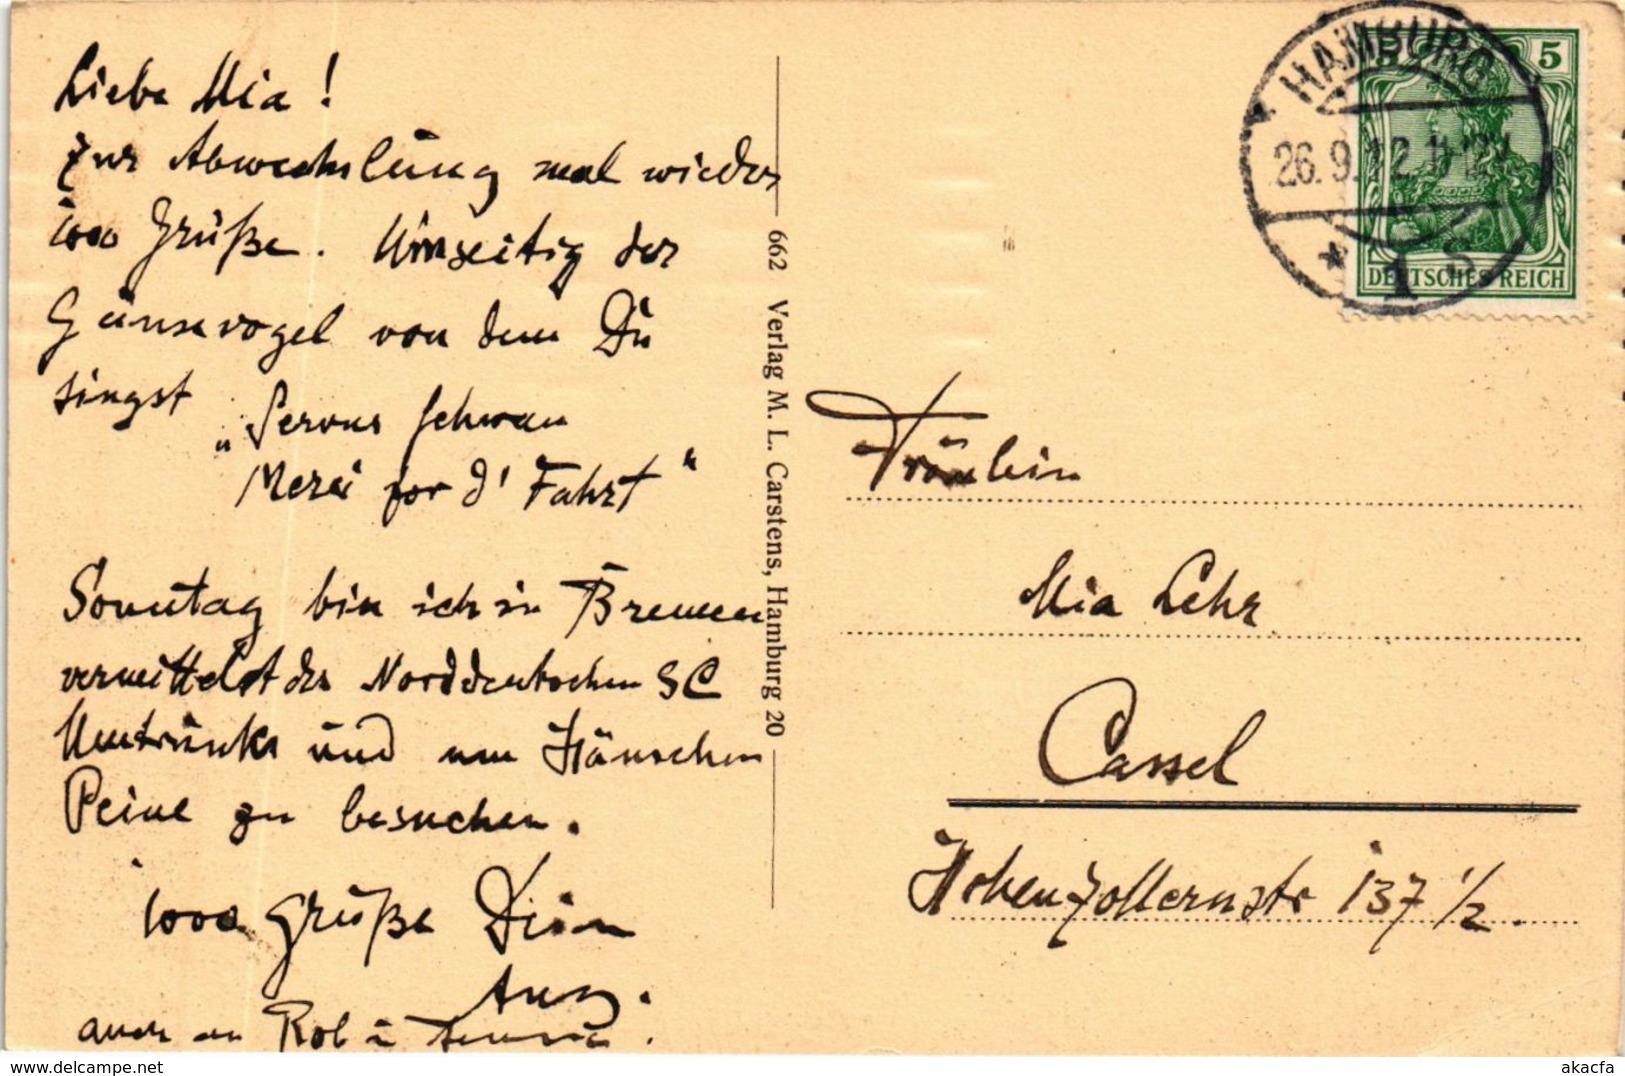 Liebe Mia !
Zur Abwechslung mal wieder
1000 Grüße. Umseitig der
Gänsevogel von dem Du
singst
„Servus Schwan
Merci for d' Fahrt"
Sonntag bin ich in Bremen
vermittelst des Norddeutschen SC
Umtrunks und um Hänschen
Peine zu besuchen.
1000 Grüße Dein
Aug.
auch an Rob u
662 Verlag M. L. Carstens, Hamburg 20
HAMBURG
26.9.12
* 1
5
DEUTSCHES REICH
Fräulein
Mia Lehr
Cassel
Hohenzollernstr 137 1/2.
akacfa